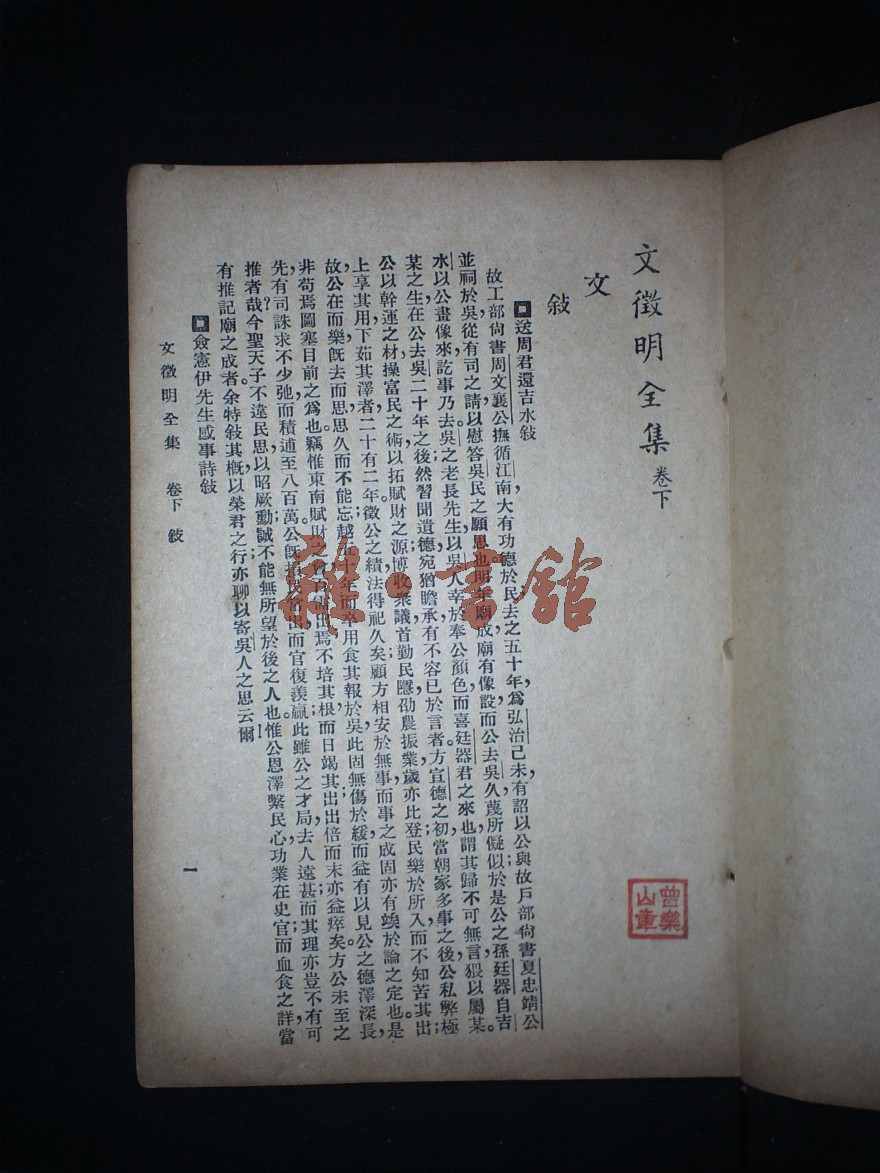 文徵明全集 卷下
文
敍
送周君還吉水敍
故工部尙書周文襄公撫循江南，大有功德於民去之五十年，爲弘治己未，有詔以公與故戶部尙書夏忠靖公
並祠於吳從有司之請以慰答吳民之願思也明年廟成廟有像設而公去吳久蔑所儗似於是公之孫廷器自吉
水以公畫像來訖事乃去吳之老長先生以吳人幸於奉公顏色而喜廷器君之來也謂其歸不可無言猥以屬某。
某之生在公去吳二十年之後然習聞遺德宛猶瞻承有不容已於言者方宣德之初當朝家多事之後公私弊極；
公以幹運之材操富民之術以拓賦財之源博收衆議首勤民隱劭農振業歲亦比登民樂於所入而不知苦其出
上享其用下茹其澤者二十有二年徵公之績法得祀久矣顧方相安於無事而事之成固亦有竢於論之定也是
故公在而樂旣去而思思久而不能忘越五十年而卒用食其報於吳此固無傷於緩而益有以見公之德澤深長，
非苟焉圖塞目前之爲也竊惟東南賦財之焉不培其根而日竭其出出倍而末亦益瘁矣方公未至之
先有司誅求不少弛而積逋至八百萬公旣而官復羨贏此雖公之才局去人遠甚而其理亦豈不有可
推者哉今聖天子不違民思以昭厥勳誠不能無所望於後之人也惟公恩澤繫民心功業在史官而血食之詳當
有推記廟之成者余特敍其槪以榮君之行亦聊以寄吳人之思云爾
僉憲伊先生感事詩敍
文徵明全集 卷下 敍
一
曾樂山
雜·書館